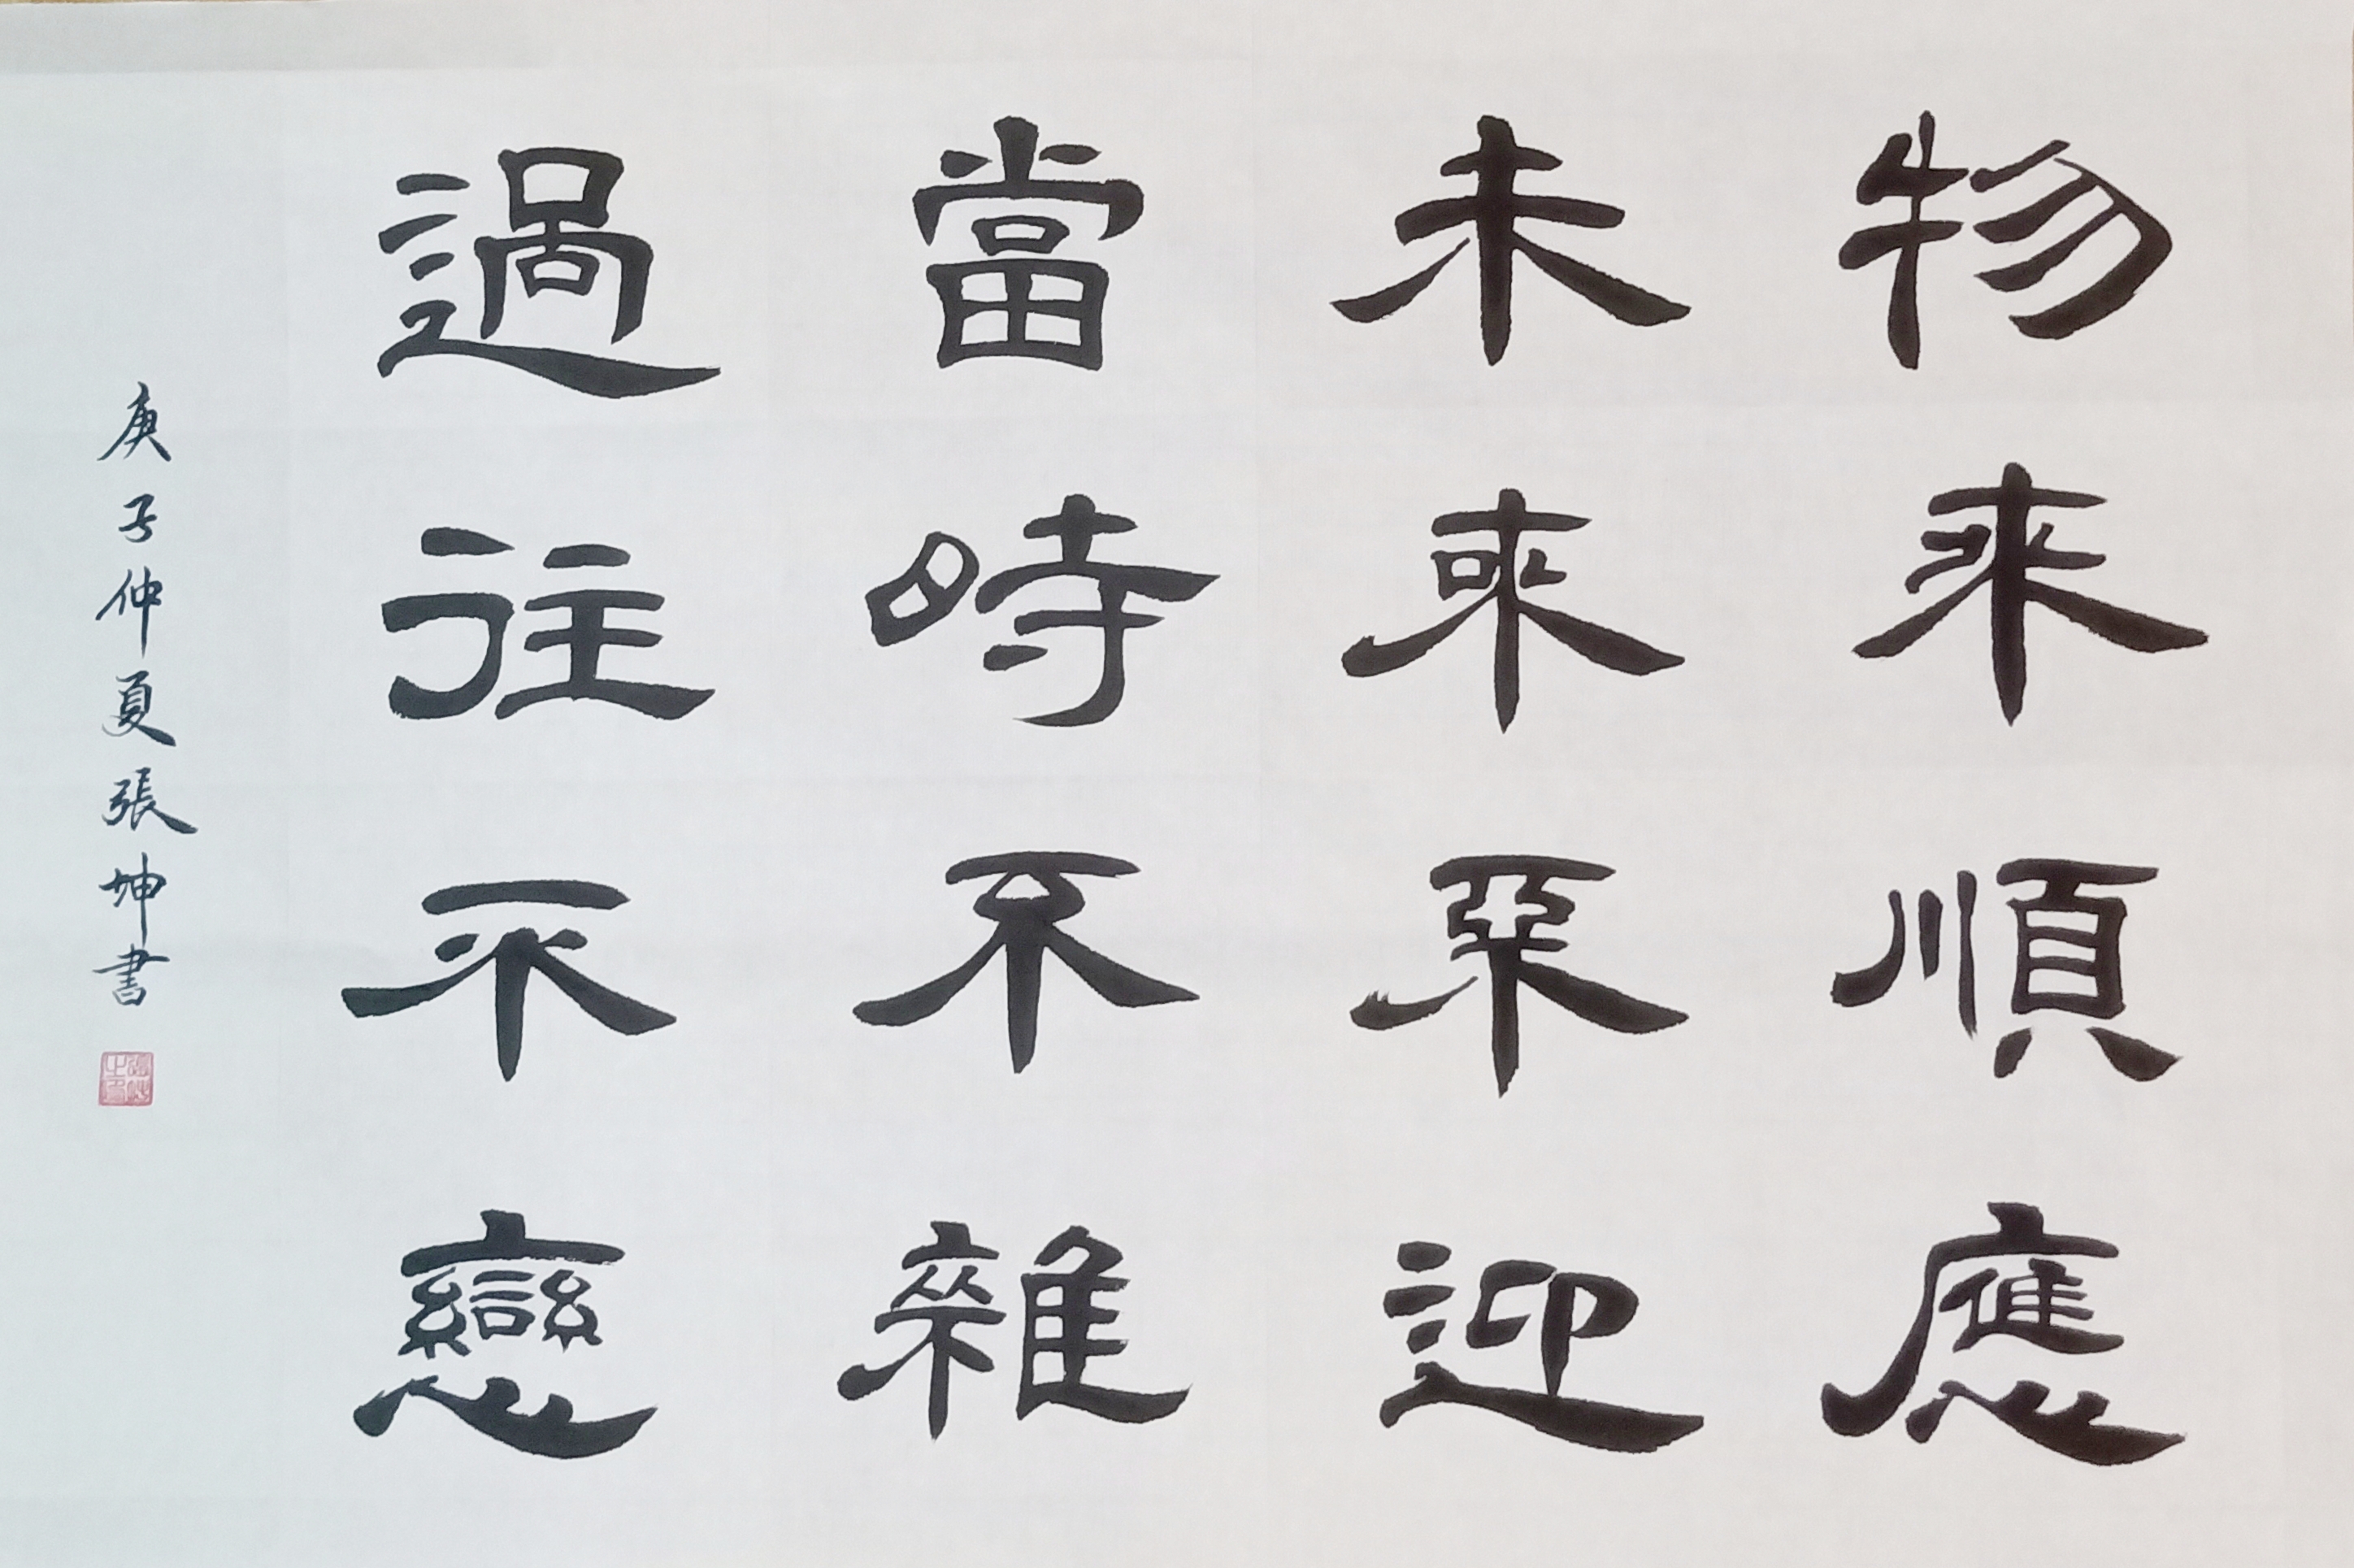 物來順應
未來不迎
當時不雜
過往不戀
庚子仲夏張坤書